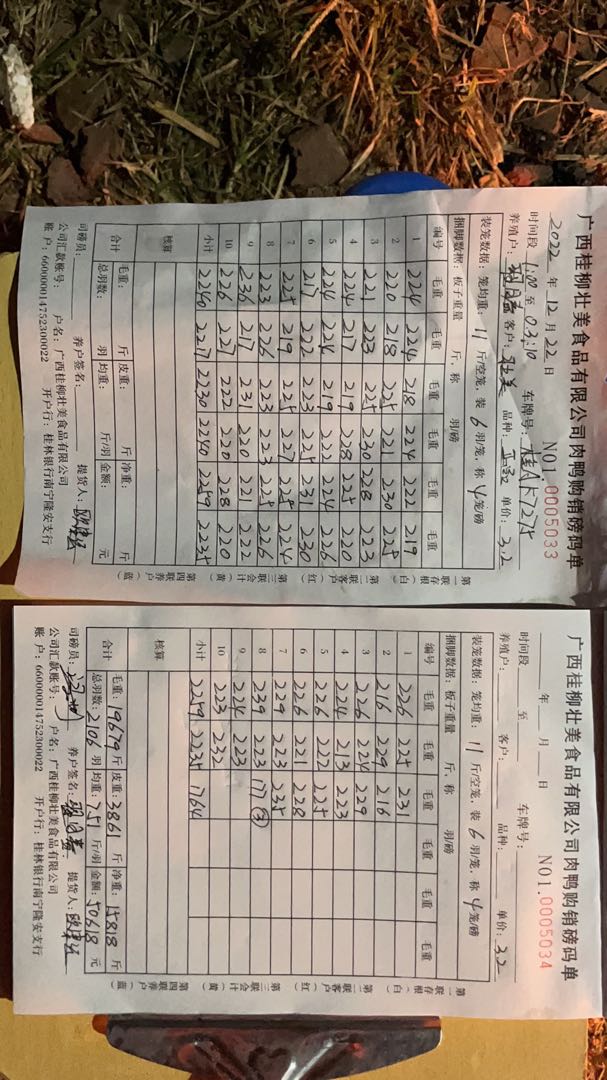 广西桂柳壮美食品有限公司肉鸭购销磅码单
2022 年 12 月 22 日 NO1.0005033
时间段 1:00 至 03:10 车牌号:
养殖户: 客户: 壮美 品种: 单价: 3.2
装笼数据: 笼均重: 11 斤/空笼, 装 6 羽/笼, 称 4 笼/磅
捆脚数据: 板子重量 斤, 称 羽/磅
编号 毛重 毛重 毛重 毛重 毛重 毛重
1 224 224 218 224 222 219
2 220 218 225 221 230 225
3 221 223 225 230 228 223
4 224 217 219 228 225 220
5 224 224 219 222 224 226
6 217 222 223 225 231 230
7 225 219 225 227 225 224
8 223 226 223 223 225 226
9 236 217 231 220 221 222
10 226 227 222 220 228 220
小计 2240 2217 2230 2240 2259 2235
核算
合计 毛重: 斤 皮重: 斤 净重: 斤
总羽数: 羽 均重: 斤/羽 金额: 元
司磅员: 养户签名: 提货人:
公司汇款账号: 户名: 广西桂柳壮美食品有限公司
账 户: 660000014752300022 开户行: 桂林银行南宁隆安支行
第一联存根(白) 第二联客户(红) 第三联会计(黄) 第四联养户(蓝)
广西桂柳壮美食品有限公司肉鸭购销磅码单
年 月 日 NO1.0005034
时间段 至 车牌号:
养殖户: 客户: 品种: 单价: 3.2
装笼数据: 笼均重: 11 斤/空笼, 装 6 羽/笼, 称 4 笼/磅
捆脚数据: 板子重量 斤, 称 羽/磅
编号 毛重 毛重 毛重 毛重 毛重 毛重
1 226 225 231
2 216 229 216
3 226 224 229
4 224 213 223
5 226 222 225
6 226 221 228
7 229 223 235
8 239 223 177 ③
9 224 223
10 223 232
小计 2259 2235 1764
核算
合计 毛重: 19679 斤 皮重: 3861 斤 净重: 15818 斤
总羽数: 2106 羽 均重: 7.51 斤/羽 金额: 50618 元
司磅员: 养户签名: 提货人:
公司汇款账号: 户名: 广西桂柳壮美食品有限公司
账 户: 660000014752300022 开户行: 桂林银行南宁隆安支行
第一联存根(白) 第二联客户(红) 第三联会计(黄) 第四联养户(蓝)